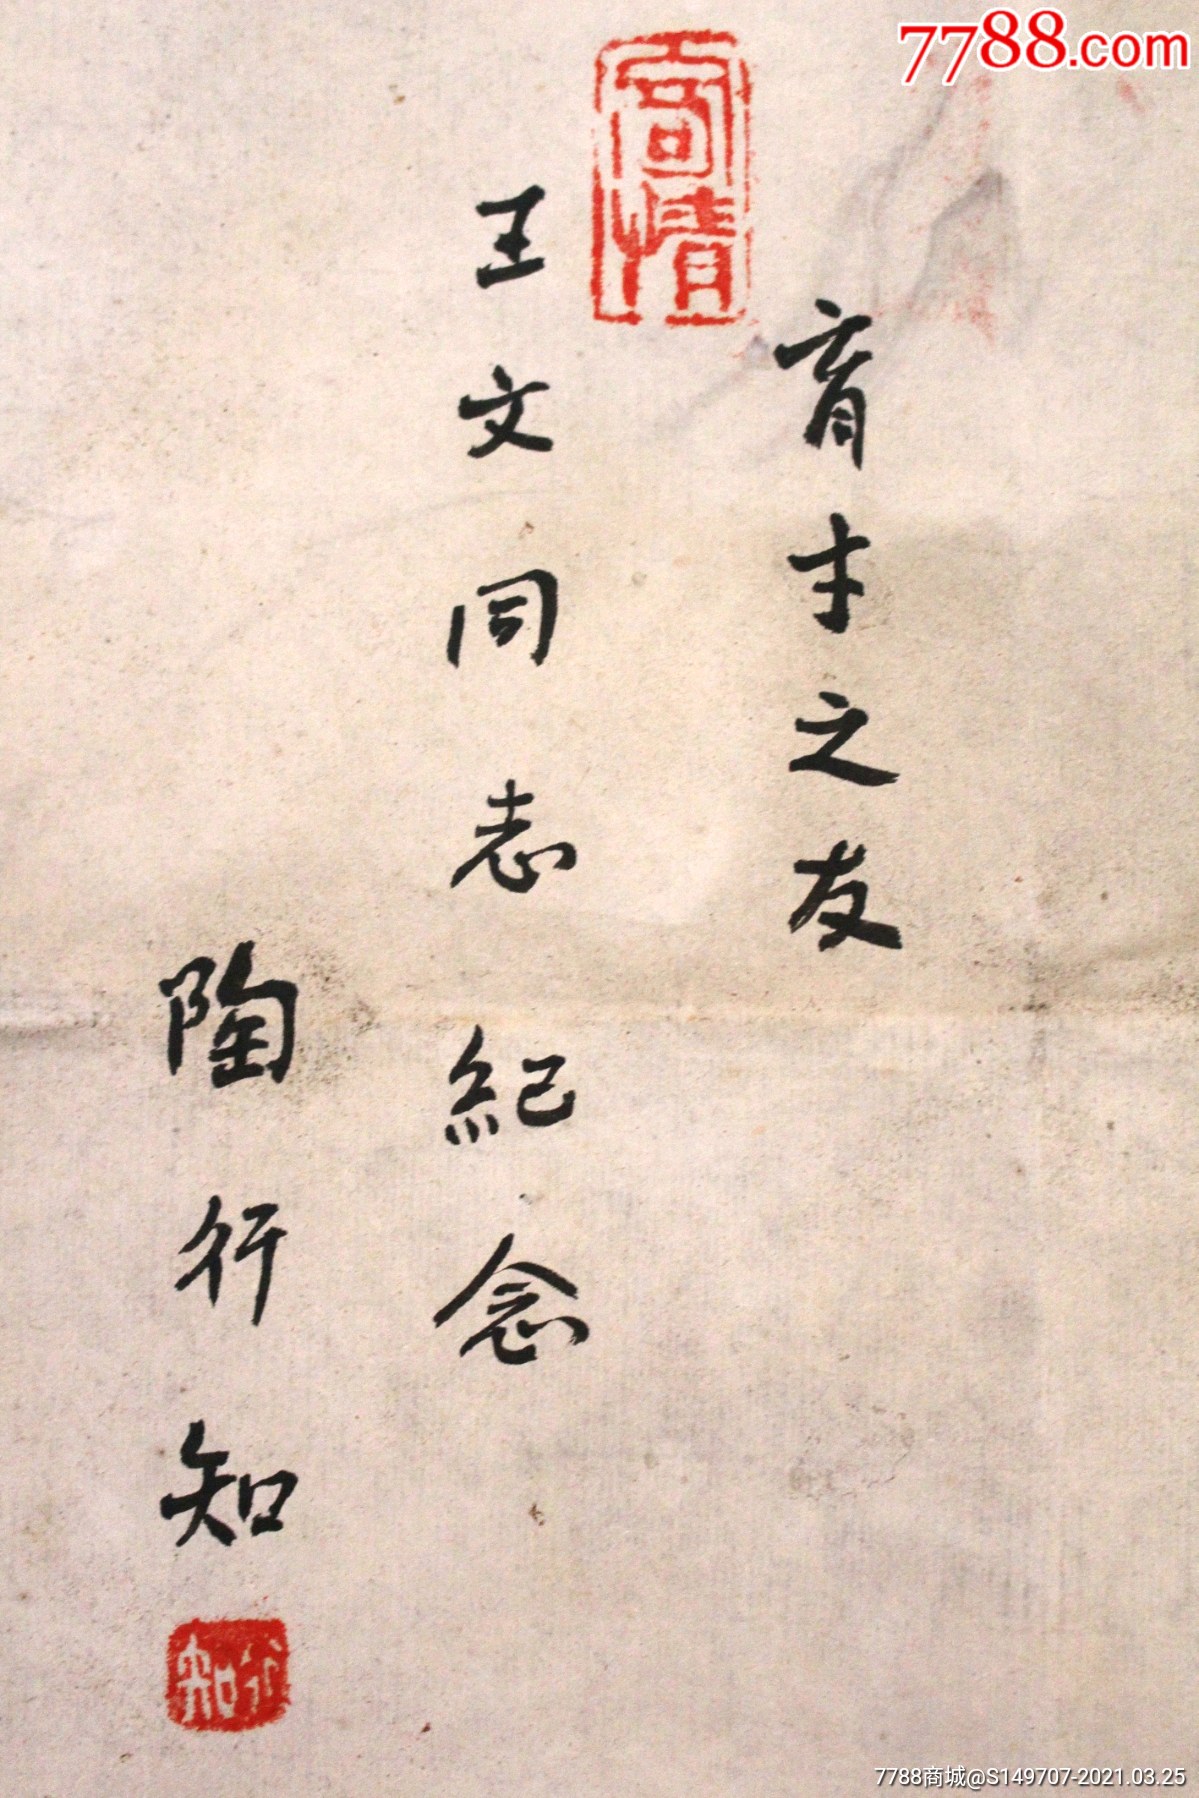 7788.com
高情
育才之友
王文同志紀念
陶行知
行知
7788商城@S149707-2021.03.25